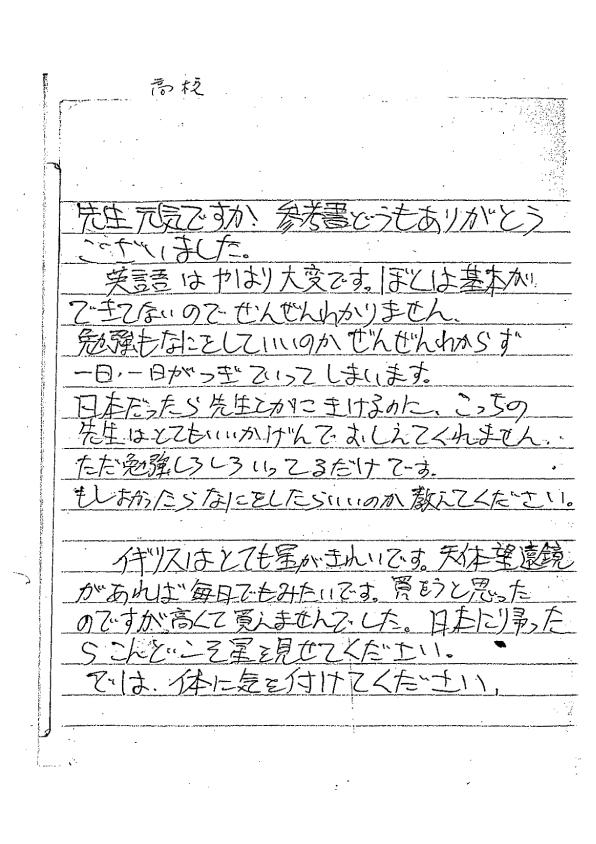 高校
先生元気ですか! 参考書どうもありがとう
ございました。
英語はやはり大変です。ぼくは基本が
できてないのでぜんぜんわかりません。
勉強もなにをしていいのかぜんぜんわからず
一日、一日がつぎていってしまいます。
日本だったら先生とかにきけるのに、こっちの
先生はとてもいいかげんでおしえてくれません。
ただ勉強しろしろいってるだけです。
もしよかったらなにをしたらいいのか教えてください。
イギリスはとても星がきれいです。天体望遠鏡
があれば毎日でもみたいです。買おうと思った
のですが、高くて買えませんでした。日本に帰った
らこんどこそ星を見せてください。
では、体に気を付けてください。